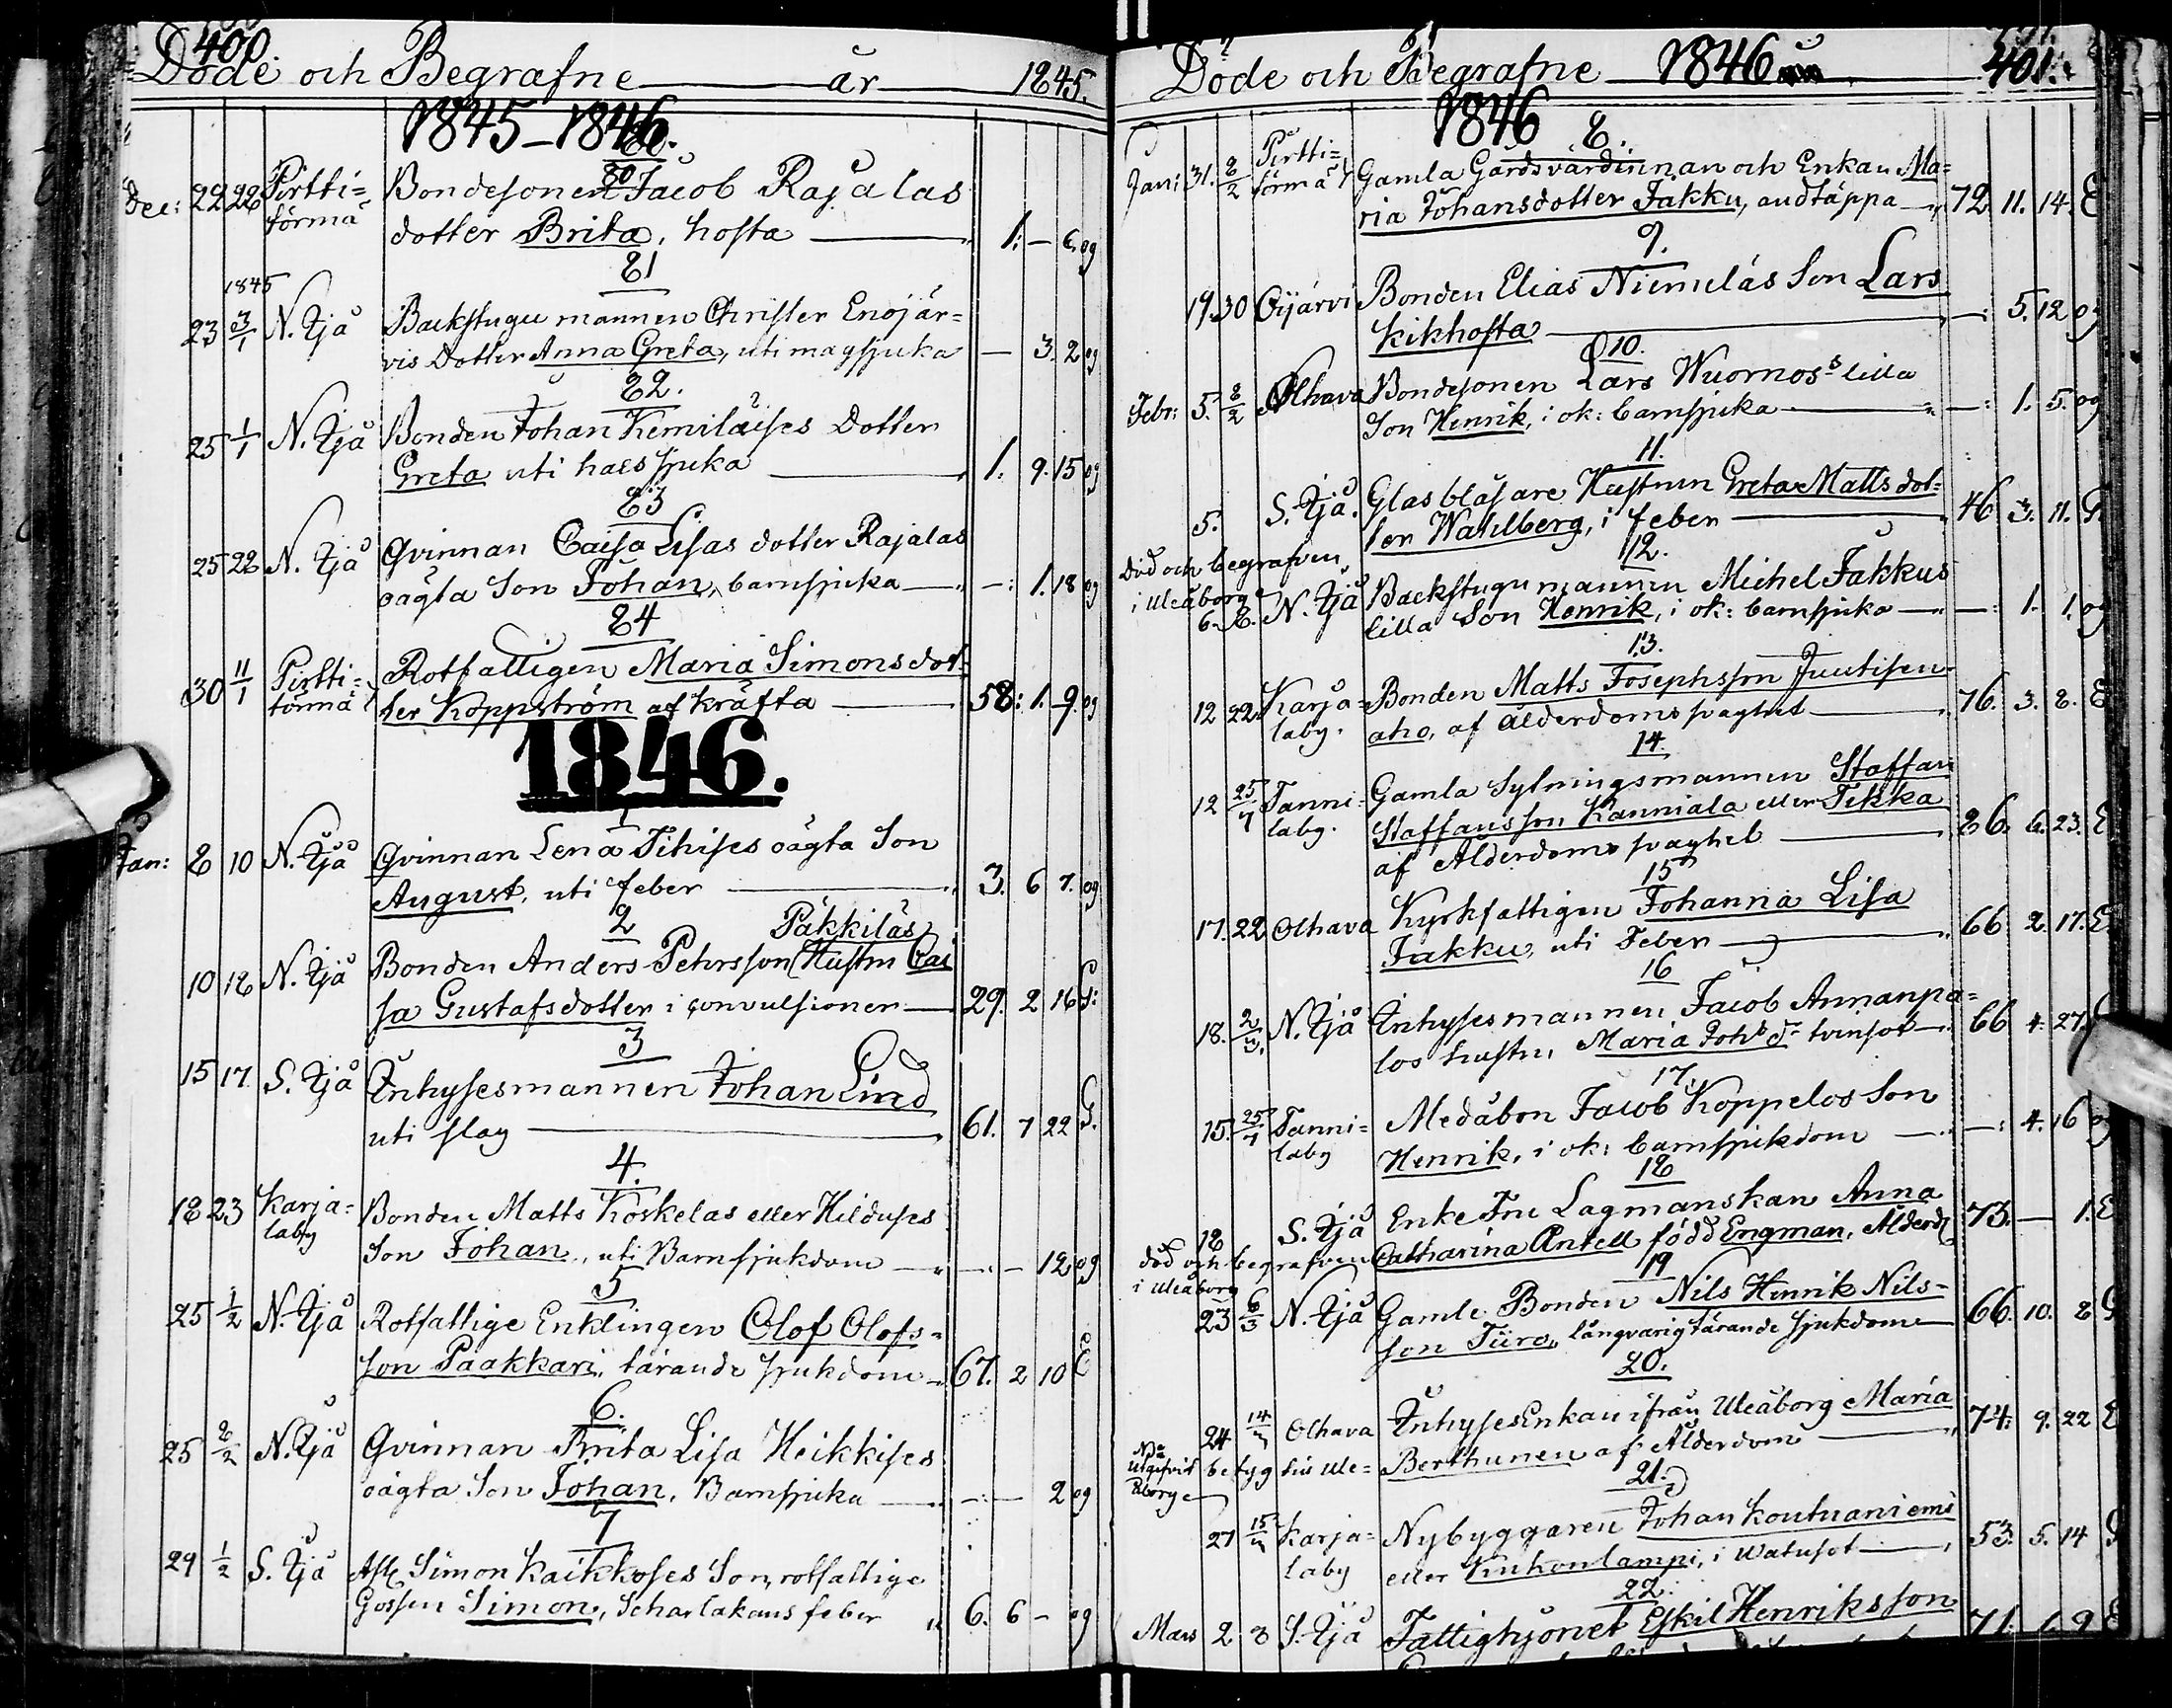 400.
Döde och Begrafne år 1845.
1845–1846.
80.
Dec: 22 28 Pirtti= Bondesonen Jacob Rajalas
törmä dotter Brita, hosta 1: — 6. og
81
1845
23 3/1 N. Ijå Backstugu mannen Christer Enojär=
vis Dotter Anna Greta, uti magsjuka — 3. 2 og
82.
25 1/1 N. Ijå Bonden Johan Kemiläises Dotter
Greta uti halssjuka 1. 9. 15 og
83
25 28 N. Ijå Qvinnan Caisa Lisas dotter Rajalas
oägta Son Johan, barnsjuka —: 1. 18 og
84
30 11/1 Pirtti= Rotfattigen Maria Simonsdot=
törmä ter Koppström af kräfta 58: 1. 9. og
1846.
1
Jan: 8 10 N. Ijå Qvinnan Lena Tihises oägta Son
August, uti feber 3. 6 7. og
2 Päkkiläs
10 18 N. Ijå Bonden Anders Pehrsson Hustru Cai
sa Gustafsdotter i convulsioner 29. 2 16 G:
3
15 17. S. Ijå Inhysesmannen Johan Lind
uti slag 61. 7 22 G.
4.
18 23 Karja= Bonden Matts Koskelas eller Hilduses
laby Son Johan, uti Barnsjukdom — — 12 og
5
25 1/2 N. Ijå Rotfattige Enklingen Olof Olofs=
son Paakkari, tärande sjukdom 67. 2 10 E
6.
25 8/2 N. Ijå Qvinnan Brita Lisa Heikkises
oägta Son Johan, Barnsjuka —:— 2 og
7
29 1/2 S. Ijå Simon Kaikkoses Son, rotfattige
Gossen Simon, Scharlakans feber 6. 6 — og
Döde och Begrafne 1846 401.
1846
8.
Jan: 31. 8/2 Pirtti= Gamla Gårdsvärdinnan och Enkan Ma=
törmä ria Johansdotter Jakku, andtäppa 72 11. 14. E
9.
19. 30 Oijärvi Bonden Elias Niemeläs Son Lars
Kikhosta —: 5. 12 og
10.
Febr: 5. 8/2 Olhava Bondesonen Lars Wuornos lilla
Son Henrik, i ok: barnsjuka —: 1. 5. og
11.
5. S. Ijå. Glasblåsare Hustrun Greta Matts dot=
ter Wahlberg, i feber 46 3. 11. G
Död och begrafven 12.
i Uleåborg
6. 8. N. Ijå Backstugu mannen Michel Jakkus
lilla Son Henrik, i ok: barnsjuka —: 1. 1. og
13.
12 22. Karja= Bonden Matts Josephsson Juutisen
laby. aho, af ålderdoms svaghet 76. 3. 8. E
14.
12 25/ Tanni= Gamla Sytningsmannen Staffan
laby. Staffansson Kanniala eller Tikka
af Ålderdoms svaghet 86. 6. 23. E
15
17. 22 Olhava Kyrkfattigen Johanna Lisa
Jakku, uti Feber 66 2. 17. E
16
18. 2/3. N. Ijå Inhysesmannen Jacob Annanpa=
los hustru, Maria Johs dr tvinsot 66 4. 27.
17.
15. 25/ Tanni= Medåbon Jacob Koppelos Son
laby Henrik, i ok: barnsjukdom —: 4. 16 og
18
18 S. Ijå Enke Fru Lagmanskan Anna
död och begrafven Catharina Antell född Engman, Ålderd 73. — 1. E
i Uleåborg 19
23 6/3 N. Ijå Gamle Bonden Nils Henrik Nils=
son Tiiro, långvarig tärande sjukdom 66. 10. 8 G
20.
24 14/ Olhava InhysesEnkan ifrån Uleåborg Maria
utgifvit betyg till Ule= Berthunen af Ålderdom 74: 9. 22 E
åborg 21.
27 15/ Karja= Nybyggaren Johan Koutuaniemi
laby eller Kuhonlampi, i Watusot 53. 5. 14 G
22.
Mars 2. 8 S. Ijå Fattighjonet Eskil Henriksson 71. 1. 9 E